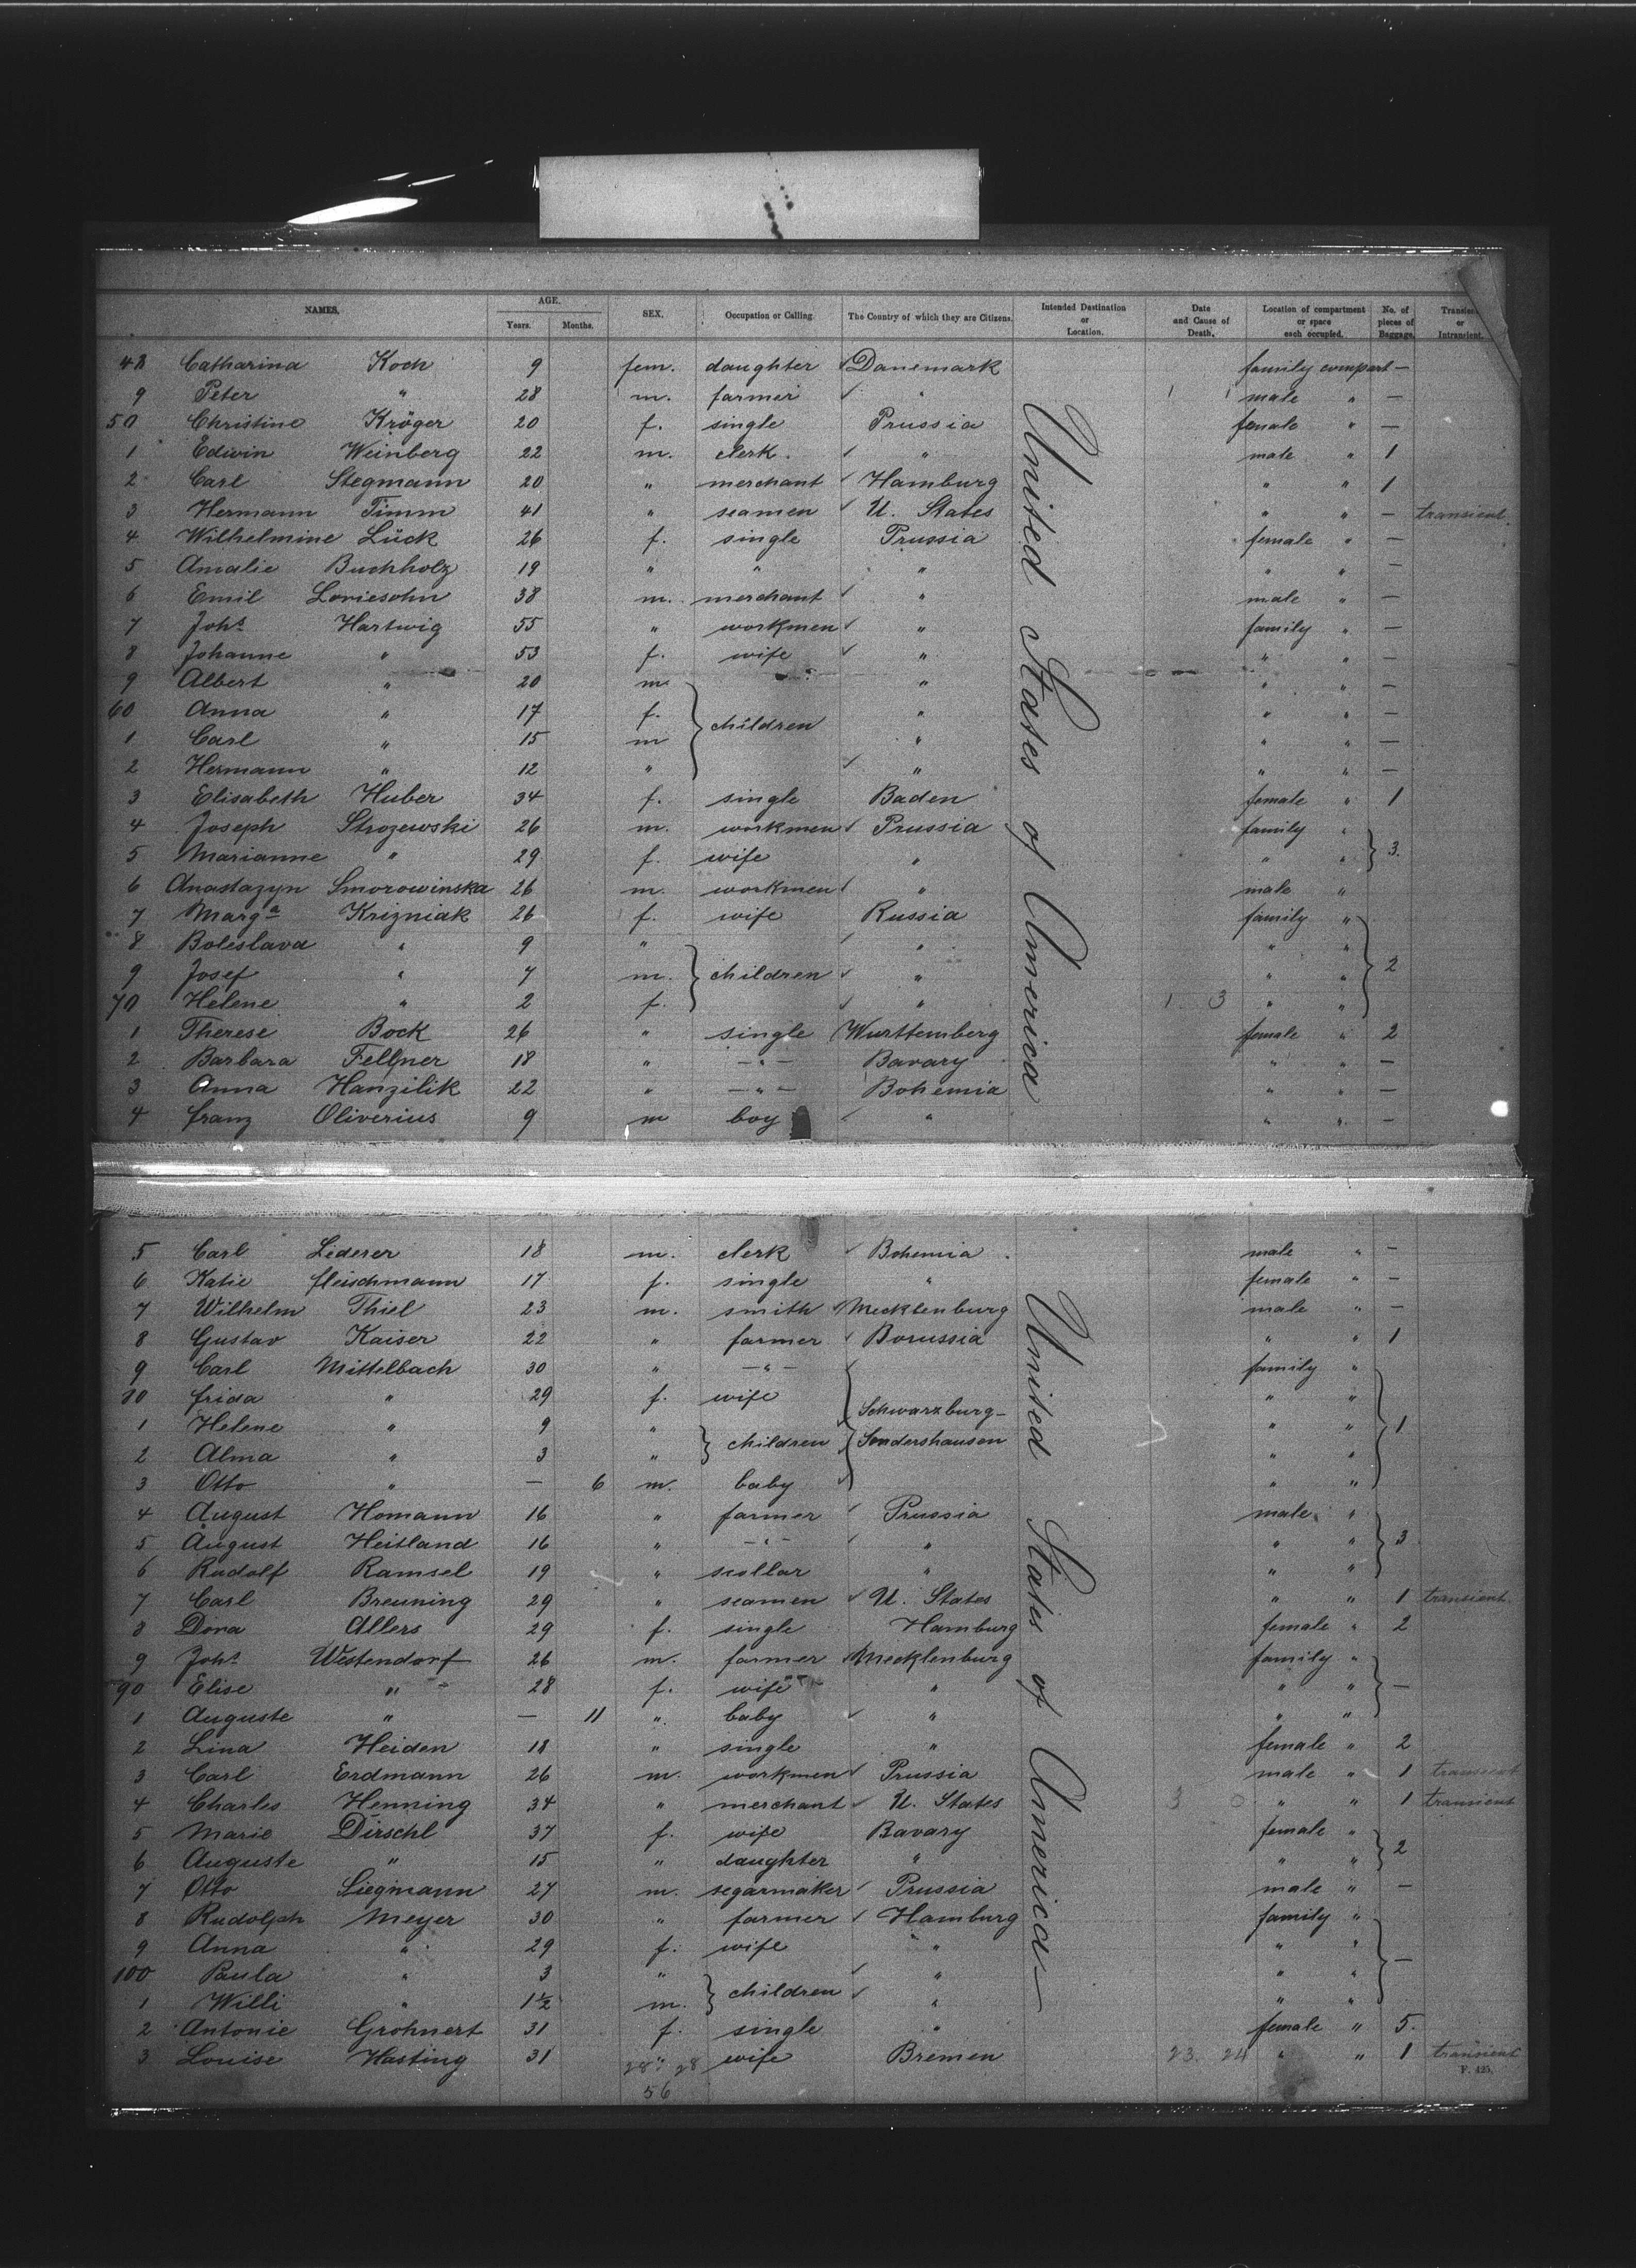 NAMES. AGE. Years. Months. SEX. Occupation or Calling. The Country of which they are Citizens. Intended Destination or Location. Date and Cause of Death. Location of compartment or space each occupied. No. of pieces of Baggage. Transient or Intransient.
48 Catharina Koch 9 fem. daughter Danemark family compart —
9 Peter " 28 m. farmer " male " —
50 Christine Kröger 20 f. single Prussia female " —
1 Edwin Weinberg 22 m. clerk. " male " 1
2 Carl Stegmann 20 " merchant Hamburg " " 1
3 Hermann Timm 41 " seamen U. States " " — transient.
4 Wilhelmine Lück 26 f. single Prussia female " —
5 Amalie Buchholz 19 " " " " " —
6 Emil Loviesohn 38 m. merchant " male " —
7 Johs Hartwig 55 " workmen " family " —
8 Johanne " 53 f. wife " " " —
9 Albert " 20 m " " " —
60 Anna " 17 f. children " " " —
1 Carl " 15 m " " " —
2 Hermann " 12 " " " " —
3 Elisabeth Huber 34 f. single Baden female " 1
4 Joseph Strozewski 26 m. workmen Prussia family "
5 Marianne " 29 f. wife " " " 3.
6 Anastazyn Smorowinska 26 m. workmen " male "
7 Marga Krizniak 26 f. wife Russia family "
8 Boleslava " 9 " " " "
9 Josef " 7 m. children " " " 2
70 Helene " 2 f. " 1 3 " "
1 Therese Bock 26 " single Wurttemberg female " 2
2 Barbara Fellner 18 " — " — Bavary " " —
3 Anna Hanzilik 22 " — " — Bohemia " " —
4 Franz Oliverius 9 m boy " " " —
United States of America
5 Carl Lederer 18 m. clerk Bohemia. male " —
6 Katie Fleischmann 17 f. single " female " —
7 Wilhelm Thiel 23 m. smith Mecklenburg male " —
8 Gustav Kaiser 22 " farmer Borussia " " 1
9 Carl Mittelbach 30 " — " — family "
80 Frida " 29 f. wife Schwarzburg- " "
1 Helene " 9 " children Sondershausen " " 1
2 Alma " 3 " " "
3 Otto " — 6 m. baby " "
4 August Homann 16 " farmer Prussia male "
5 August Heitland 16 " — " — " " " 3
6 Rudolf Ramsel 19 " scollar " " "
7 Carl Breuning 29 " seamen U. States " " 1 transient.
8 Dora Allers 29 f. single Hamburg female " 2
9 Johs Westendorf 26 m. farmer Mecklenburg family "
90 Elise " 28 f. wife " " " —
1 Auguste " — 11 " baby " " "
2 Lina Heiden 18 " single " female " 2
3 Carl Erdmann 26 m. workmen Prussia male " 1 transient
4 Charles Henning 34 " merchant U. States 3 0 " " 1 transient
5 Marie Dirschl 37 f. wife Bavary female "
6 Auguste " 15 " daughter " " " 2
7 Otto Siegmann 27 m. segarmaker Prussia male " —
8 Rudolph Meyer 30 " farmer Hamburg family "
9 Anna " 29 f. wife " " " —
100 Paula " 3 " children " " "
1 Willi " 1½ m. " " "
2 Antonie Grohnert 31 f. single " female " 5.
3 Louise Hasting 31 " wife Bremen 23. 24 " " 1 transient
28 28
56
F. 425.
United States of America